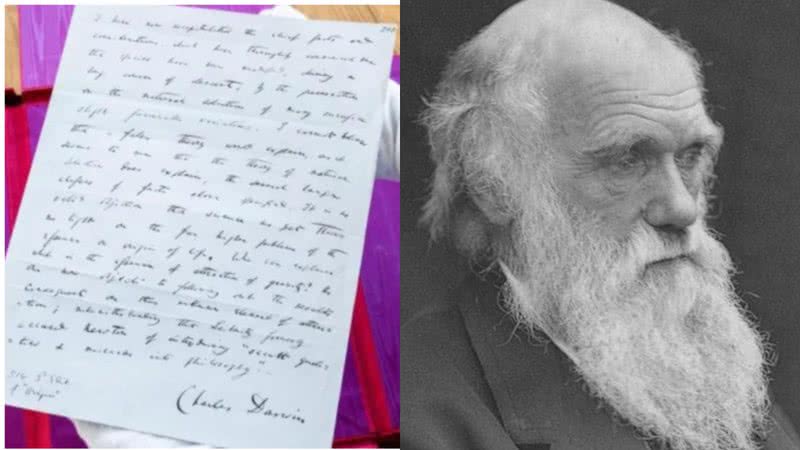 I have now recapitulated the chief facts and
considerations which have thoroughly convinced me
that species have been modified, during a
long course of descent, by the preservation
or the natural selection of many successive
slight favourable variations. I cannot believe
that a false theory would explain, as it
seems to me that the theory of natural
selection does explain, the several large
classes of facts above specified. It is no
valid objection that science as yet throws
no light on the far higher problem of the
essence or origin of life. Who can explain
what is the essence of attraction of gravity? No
one now objects to following out the results
consequent on this unknown element of attrac
tion; notwithstanding that Leibnitz formerly
accused Newton of introducing "occult quali
ties & miracles into philosophy".
Charles Darwin
"Origin"